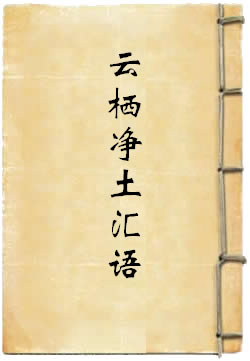 云栖净土汇语